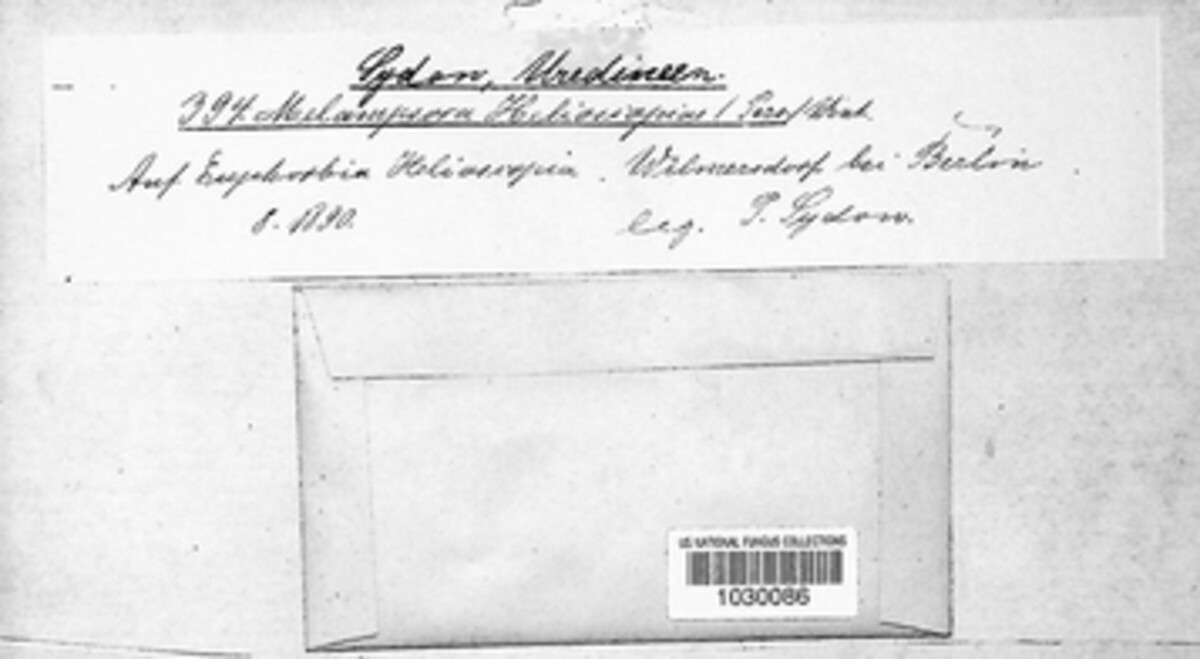 Sydow, Uredineen.
394. Melampsora Helioscopiae (Pers) Wint.
Auf Euphorbia Helioscopia. Wilmersdorf bei Berlin
8. 1890. leg. P. Sydow.
US NATIONAL FUNGUS COLLECTIONS
1030086